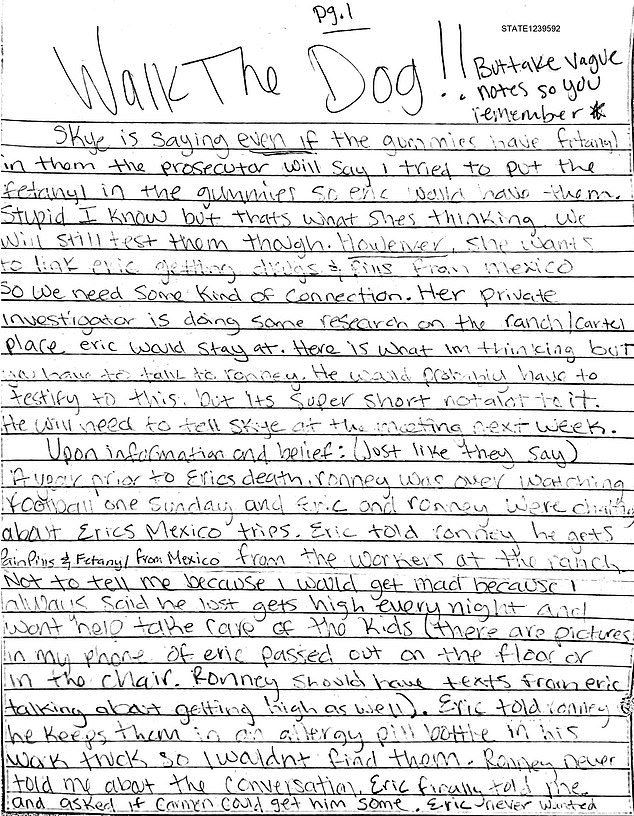 pg.1
STATE1239592
Walk The Dog!!
But take vague
notes so you
remember *
Skye is saying even if the gummies have fetanyl
in them the prosecutor will say I tried to put the
fetanyl in the gummies so eric would have them.
Stupid I know but thats what shes thinking. We
will still test them though. However, she wants
to link eric getting drugs & pills from mexico
So we need some kind of connection. Her private
investigator is doing some research on the ranch/cartel
place eric would stay at. Here is what im thinking but
you have to talk to ronney. He would probably have to
testify to this, but its super short not alot to it.
He will need to tell Skye at the meeting next week.
Upon information and belief: (Just like they say)
A year prior to Erics death, ronney was over watching
football one Sunday and Eric and ronney were chatting
about Erics Mexico trips. Eric told ronney he gets
Pain Pills & Fetanyl from Mexico from the workers at the ranch.
Not to tell me because I would get mad because I
always said he just gets high every night and
wont help take care of the kids (there are pictures
in my phone of eric passed out on the floor or
in the chair. Ronney should have texts from eric
talking about getting high as well). Eric told ronney
he keeps them in an allergy pill bottle in his
work truck so I wouldnt find them. Ronney never
told me about the conversation. Eric finally told me
and asked if Carmen could get him some. Eric never wanted